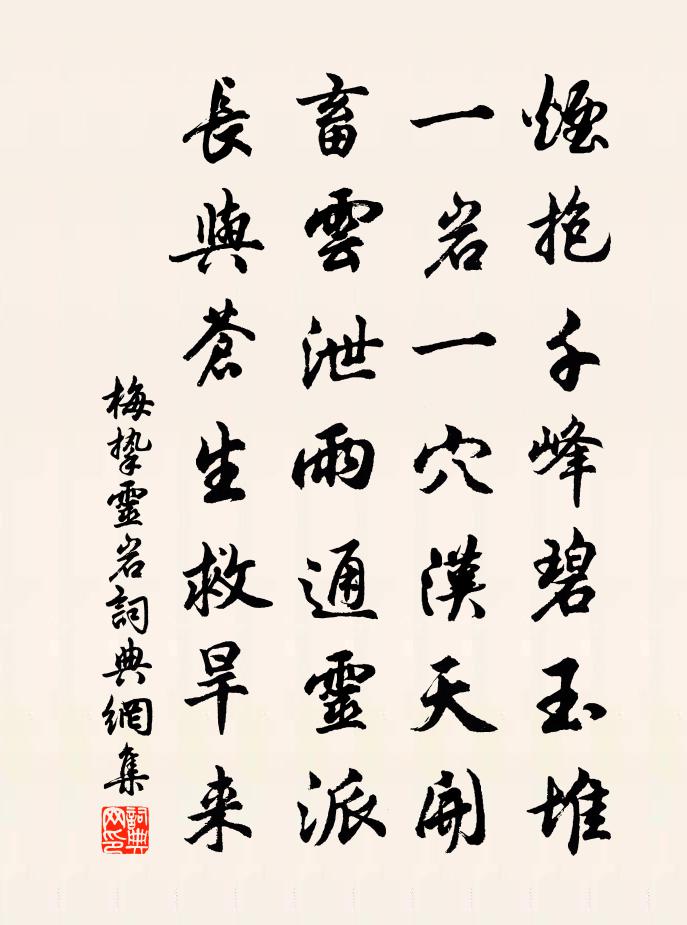 煙抱千峰碧玉堆
一岩一穴漢天開
畜雲泄雨通靈派
長與蒼生救旱来
梅挚靈岩詞典網集
詞典网印